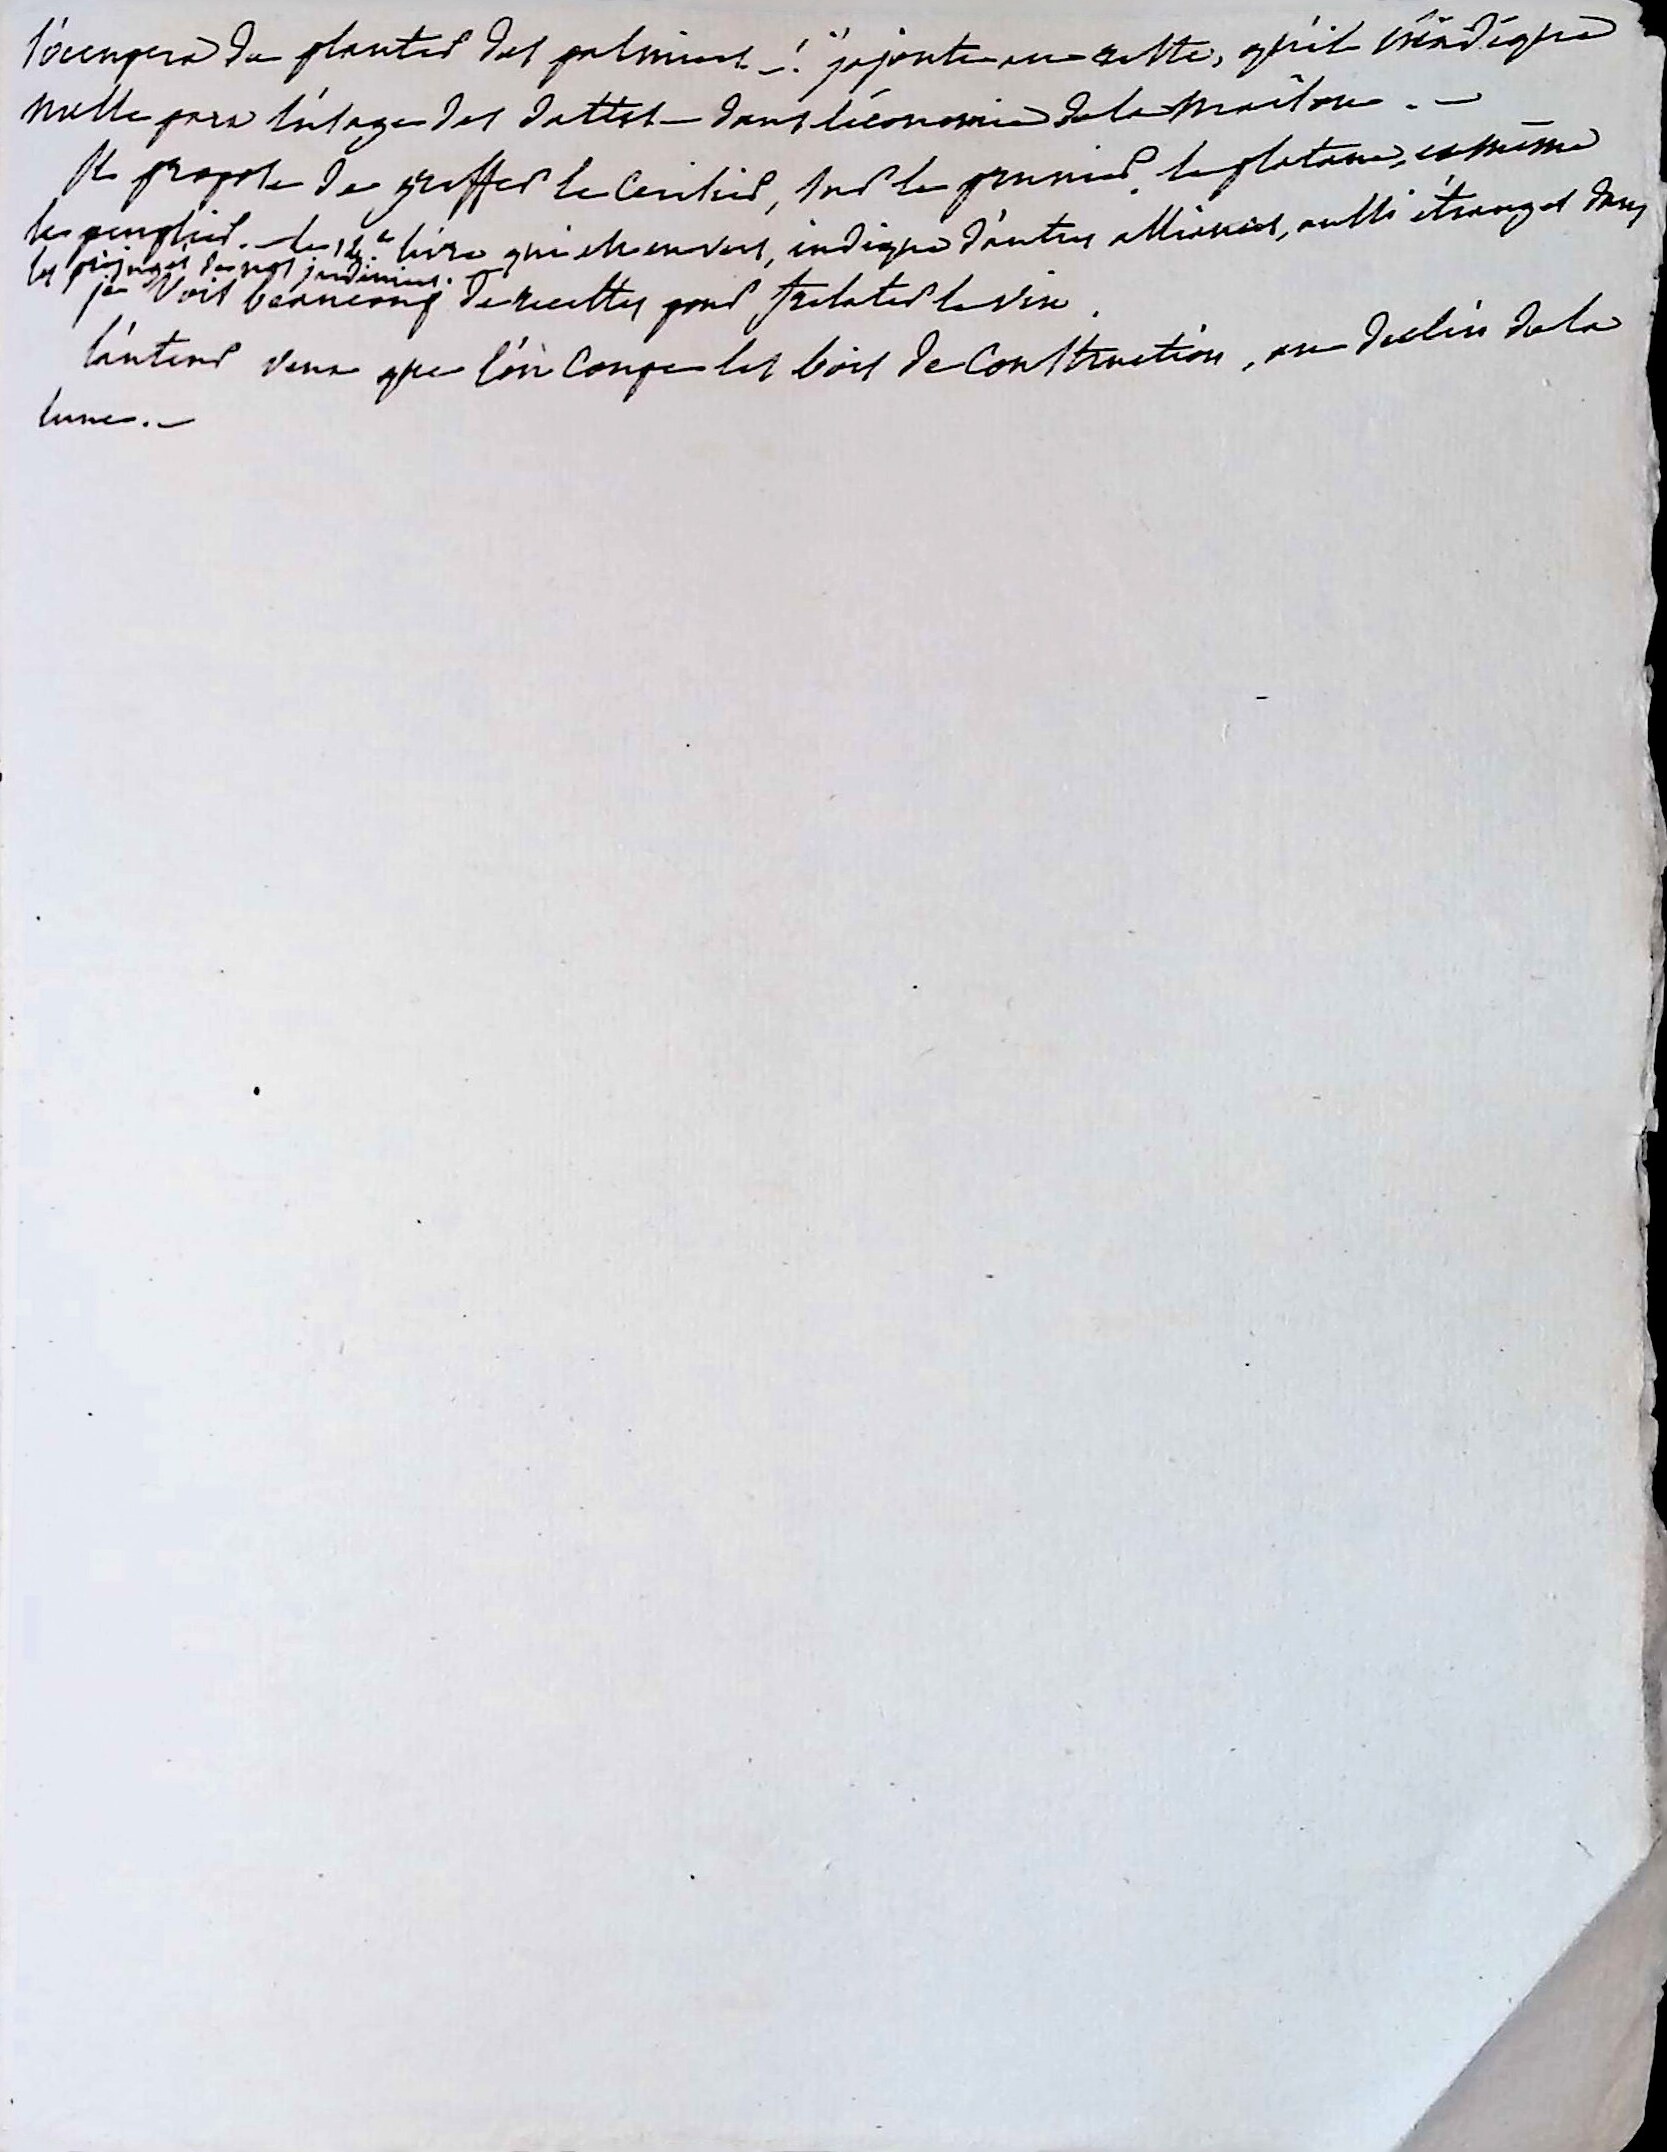 s'occupera de planter des palmiers_! j'ajoute au reste, qu'il n'indique
nulle para l'usage des dattes_ dans l'économie de la maison._
Il propose de greffer le cerisier, sur le prunier, le platane, et même
le peuplier._ le 14.e livre qui est en vers, indique d'autres alliances, aussi étranges dans
les préjugés de nos jardiniers.
je vois beaucoup de recettes pour frelater le vin.
l'auteur veut que l'on coupe les bois de construction, au déclin de la
lune._